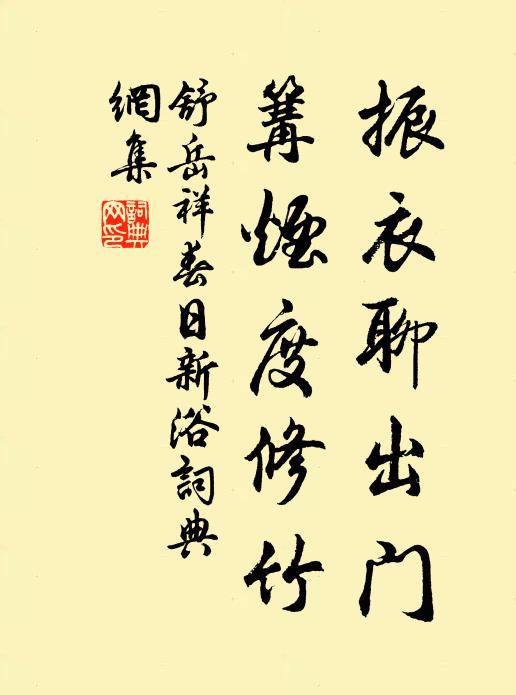 振衣聊出门
篝煙度修竹
舒岳祥春日新浴詞典
網集
詞典
网印